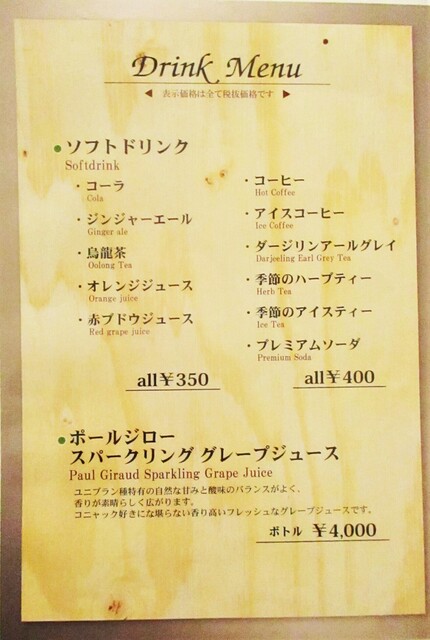 Drink Menu
◀ 表示価格は全て税抜価格です ▶
●ソフトドリンク
Softdrink
・コーラ
Cola
・ジンジャーエール
Ginger ale
・烏龍茶
Oolong Tea
・オレンジジュース
Orange juice
・赤ブドウジュース
Red grape juice
all¥350
・コーヒー
Hot Coffee
・アイスコーヒー
Ice Coffee
・ダージリンアールグレイ
Darjeeling Earl Grey Tea
・季節のハーブティー
Herb Tea
・季節のアイスティー
Ice Tea
・プレミアムソーダ
Premium Soda
all¥400
●ポールジロー
スパークリング グレープジュース
Paul Giraud Sparkling Grape Juice
ユニブラン種特有の自然な甘みと酸味のバランスがよく、
香りが素晴らしく広がります。
コニャック好きにな堪らない香り高いフレッシュなグレープジュースです。
ボトル ¥4,000